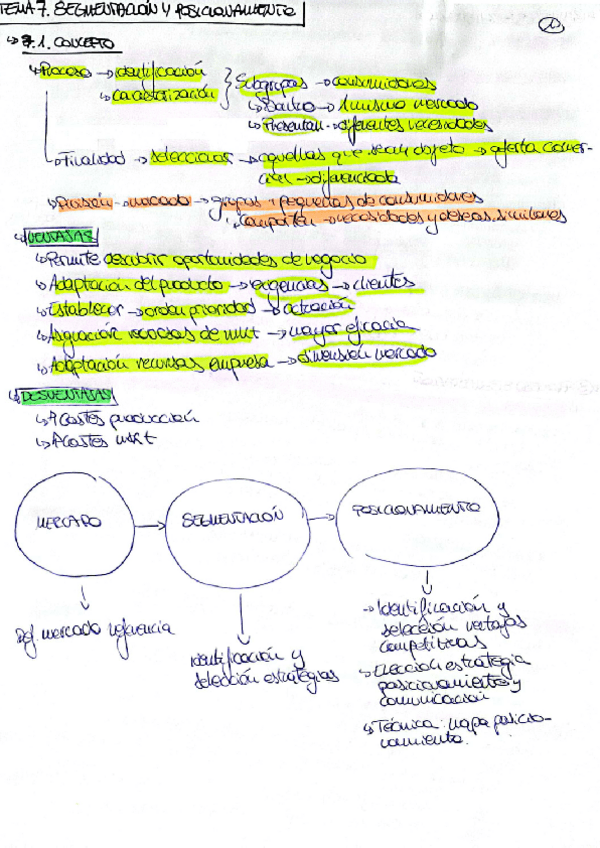 TEMA 7. SEGMENTACIÓN Y POSICIONAMIENTO
↳ 7.1. CONCEPTO
↳ Proceso → identificación
↳ caracterización } Subgrupos → consumidores
↳ Dentro → 1 mismo mercado
↳ Presentan → diferentes necesidades
↳ Finalidad → seleccionar → aquellas que sean objeto → oferta comer-
cial → diferenciada
↳ División → mercado → grupos + pequeños de consumidores
↳ comparten → necesidades y deseos similares
↳ VENTAJAS
↳ Permite descubrir oportunidades de negocio
↳ Adaptación del producto → exigencias → clientes
↳ Establecer → orden prioridad → actuación
↳ Asignación recursos de mkt → mayor eficacia
↳ Adaptación recursos empresa → dimensión mercado
↳ DESVENTAJAS
↳ ↑ Costes producción
↳ ↑ Costes mkt
MERCADO → SEGMENTACIÓN → POSICIONAMIENTO
Def. mercado referencia
Identificación y
selección estrategias
→ Identificación y
selección ventajas
competitivas
→ Elección estrategia
posicionamiento y
comunicación
↳ Técnica: mapa posicio-
namiento.